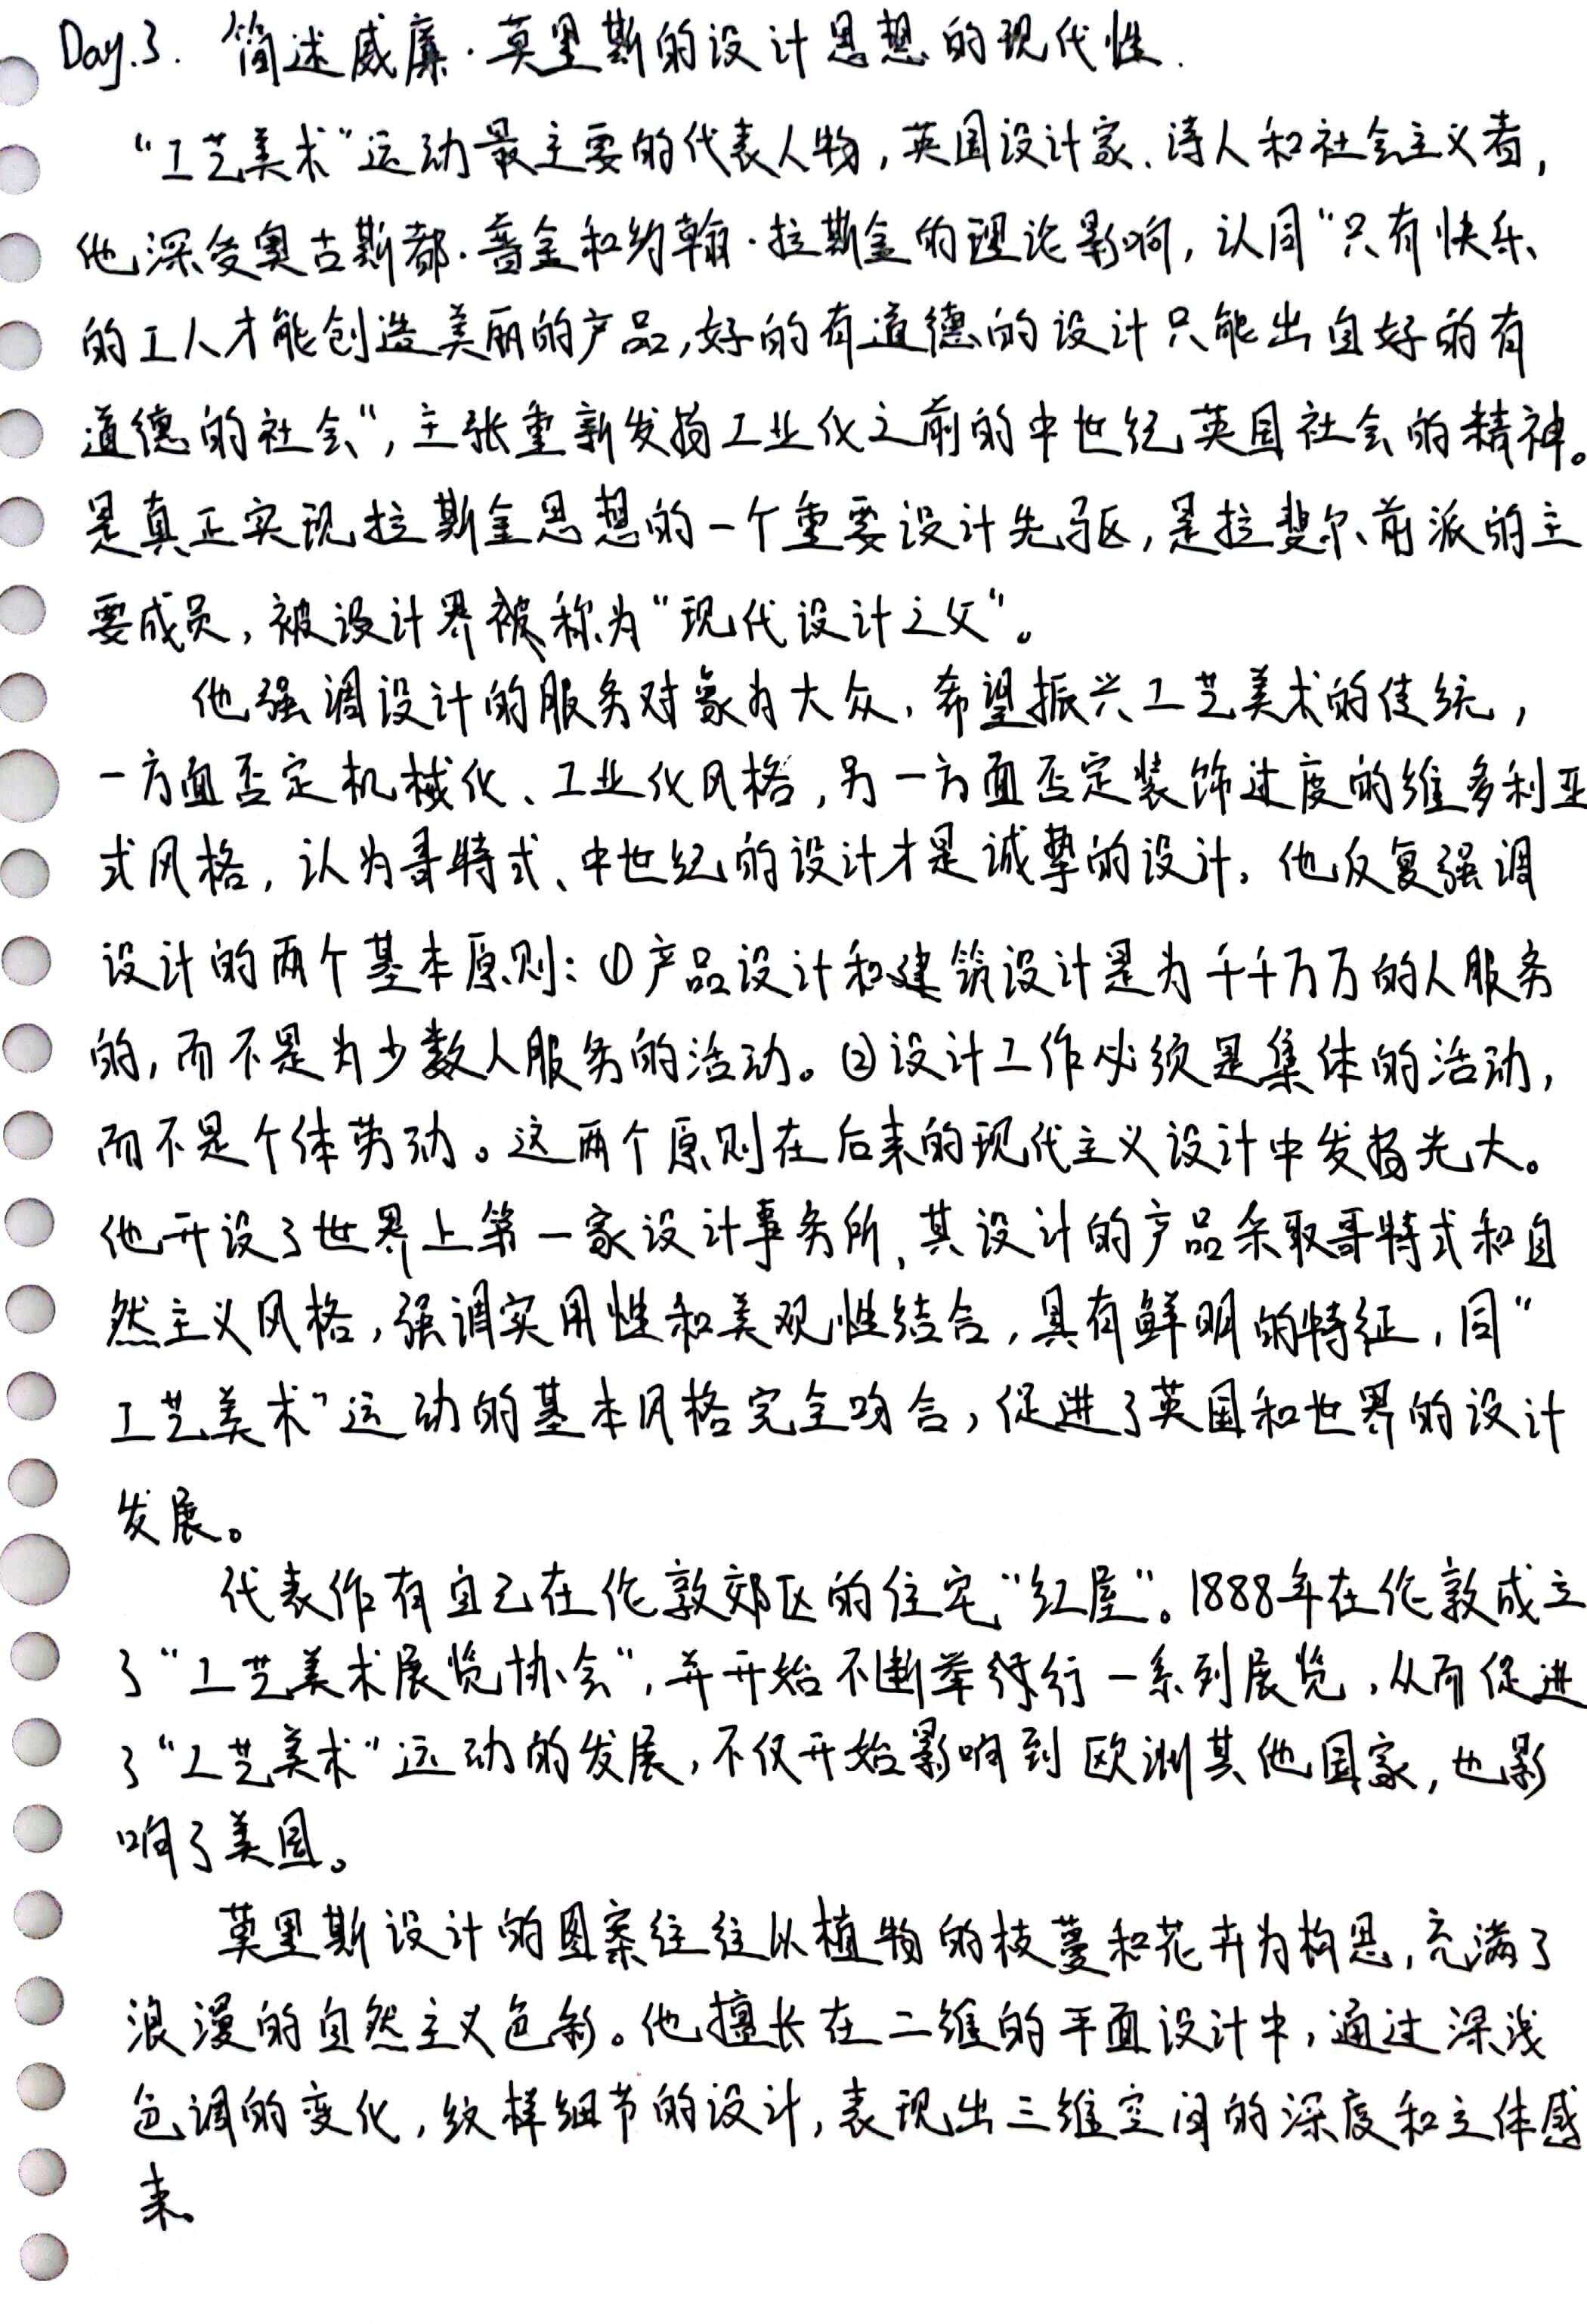 Day.3. 简述威廉·莫里斯的设计思想的现代性.
"工艺美术"运动最主要的代表人物,英国设计家、诗人和社会主义者,
他深受奥古斯都·普金和约翰·拉斯金的理论影响,认同"只有快乐
的工人才能创造美丽的产品,好的有道德的设计只能出自好的有
道德的社会",主张重新发扬工业化之前的中世纪英国社会的精神。
是真正实现拉斯金思想的一个重要设计先驱,是拉斐尔前派的主
要成员,被设计界被称为"现代设计之父"。
他强调设计的服务对象为大众,希望振兴工艺美术的传统,
一方面否定机械化、工业化风格,另一方面否定装饰过度的维多利亚
式风格,认为哥特式、中世纪的设计才是诚挚的设计。他反复强调
设计的两个基本原则:①产品设计和建筑设计是为千千万万的人服务
的,而不是为少数人服务的活动。②设计工作必须是集体的活动,
而不是个体劳动。这两个原则在后来的现代主义设计中发扬光大。
他开设了世界上第一家设计事务所,其设计的产品采取哥特式和自
然主义风格,强调实用性和美观性结合,具有鲜明的特征,同"
工艺美术"运动的基本风格完全吻合,促进了英国和世界的设计
发展。
代表作有自己在伦敦郊区的住宅"红屋"。1888年在伦敦成立
了"工艺美术展览协会",并开始不断举行一系列展览,从而促进
了"工艺美术"运动的发展,不仅开始影响到欧洲其他国家,也影
响了美国。
莫里斯设计的图案往往以植物的枝蔓和花卉为构思,充满了
浪漫的自然主义色彩。他擅长在二维的平面设计中,通过深浅
色调的变化,纹样细节的设计,表现出三维空间的深度和立体感
来。